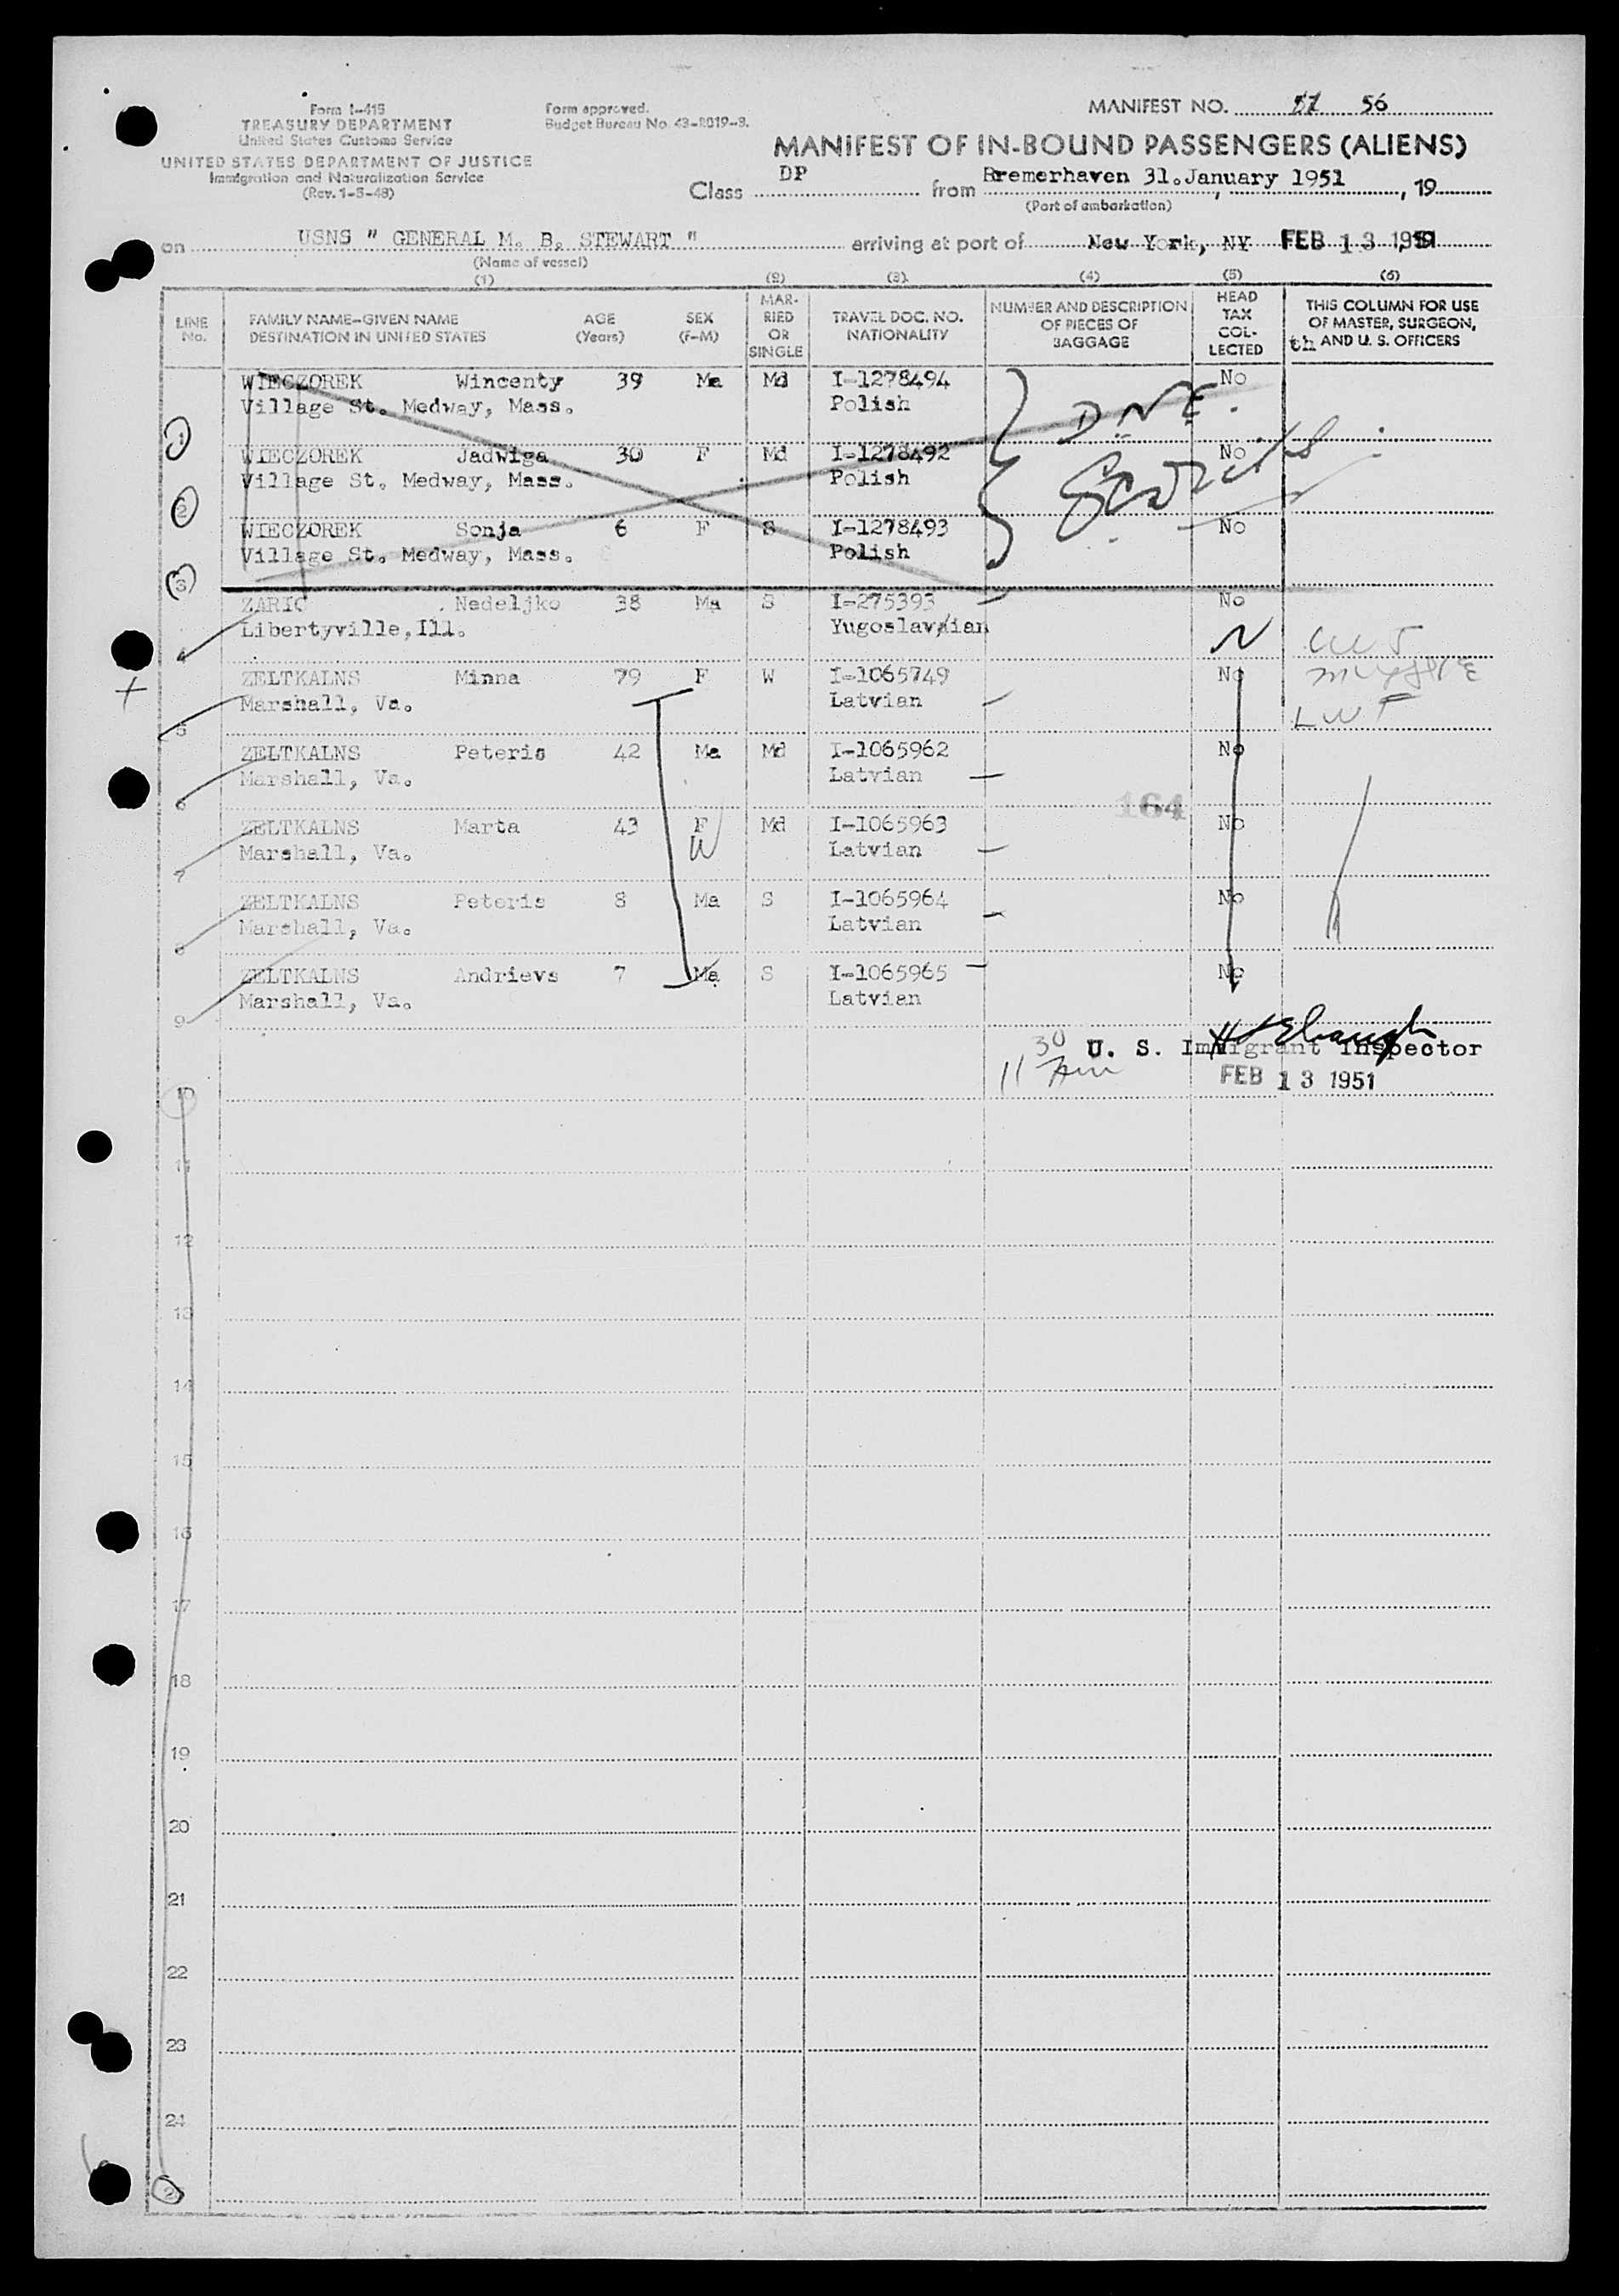 Form I-415
TREASURY DEPARTMENT
United States Customs Service
UNITED STATES DEPARTMENT OF JUSTICE
Immigration and Naturalization Service
(Rev. 1-3-48)
Form approved.
Budget Bureau No. 43-R019-3.
MANIFEST NO. 57 56
MANIFEST OF IN-BOUND PASSENGERS (ALIENS)
Class DP from Bremerhaven 31.January 1951, 19
(Port of embarkation)
on USNS " GENERAL M. B. STEWART " arriving at port of New York, NY FEB 13 1951
(Name of vessel)
(1) (2) (3) (4) (5) (6)
LINE No.
FAMILY NAME—GIVEN NAME
DESTINATION IN UNITED STATES
AGE (Years)
SEX (F-M)
MAR-RIED OR SINGLE
TRAVEL DOC. NO.
NATIONALITY
NUMBER AND DESCRIPTION OF PIECES OF BAGGAGE
HEAD TAX COL-LECTED
THIS COLUMN FOR USE OF MASTER, SURGEON, AND U. S. OFFICERS
th
WIECZOREK Wincenty 39 Ma Md I-1278494 No
Village St. Medway, Mass. Polish
D.N.E.
1
WIECZOREK Jadwiga 30 F Md I-1278492 No
Village St. Medway, Mass. Polish
2
WIECZOREK Sonja 6 F S I-1278493 No
Village St. Medway, Mass. Polish
3
ZARIC Nedeljko 38 Ma S I-275393 No
Libertyville, Ill. Yugoslavian
4
ZELTKALNS Minna 79 F W I-1065749 No
Marshall, Va. Latvian
LWF
5
ZELTKALNS Peteris 42 Ma Md I-1065962 No
Marshall, Va. Latvian
6
164
ZELTKALNS Marta 43 F Md I-1065963 No
Marshall, Va. W Latvian
7
ZELTKALNS Peteris 8 Ma S I-1065964 No
Marshall, Va. Latvian
8
ZELTKALNS Andrievs 7 Ma S I-1065965 No
Marshall, Va. Latvian
9
U. S. Immigrant Inspector
11 30 Am
FEB 13 1951
10
11
12
13
14
15
16
17
18
19
20
21
22
23
24
25